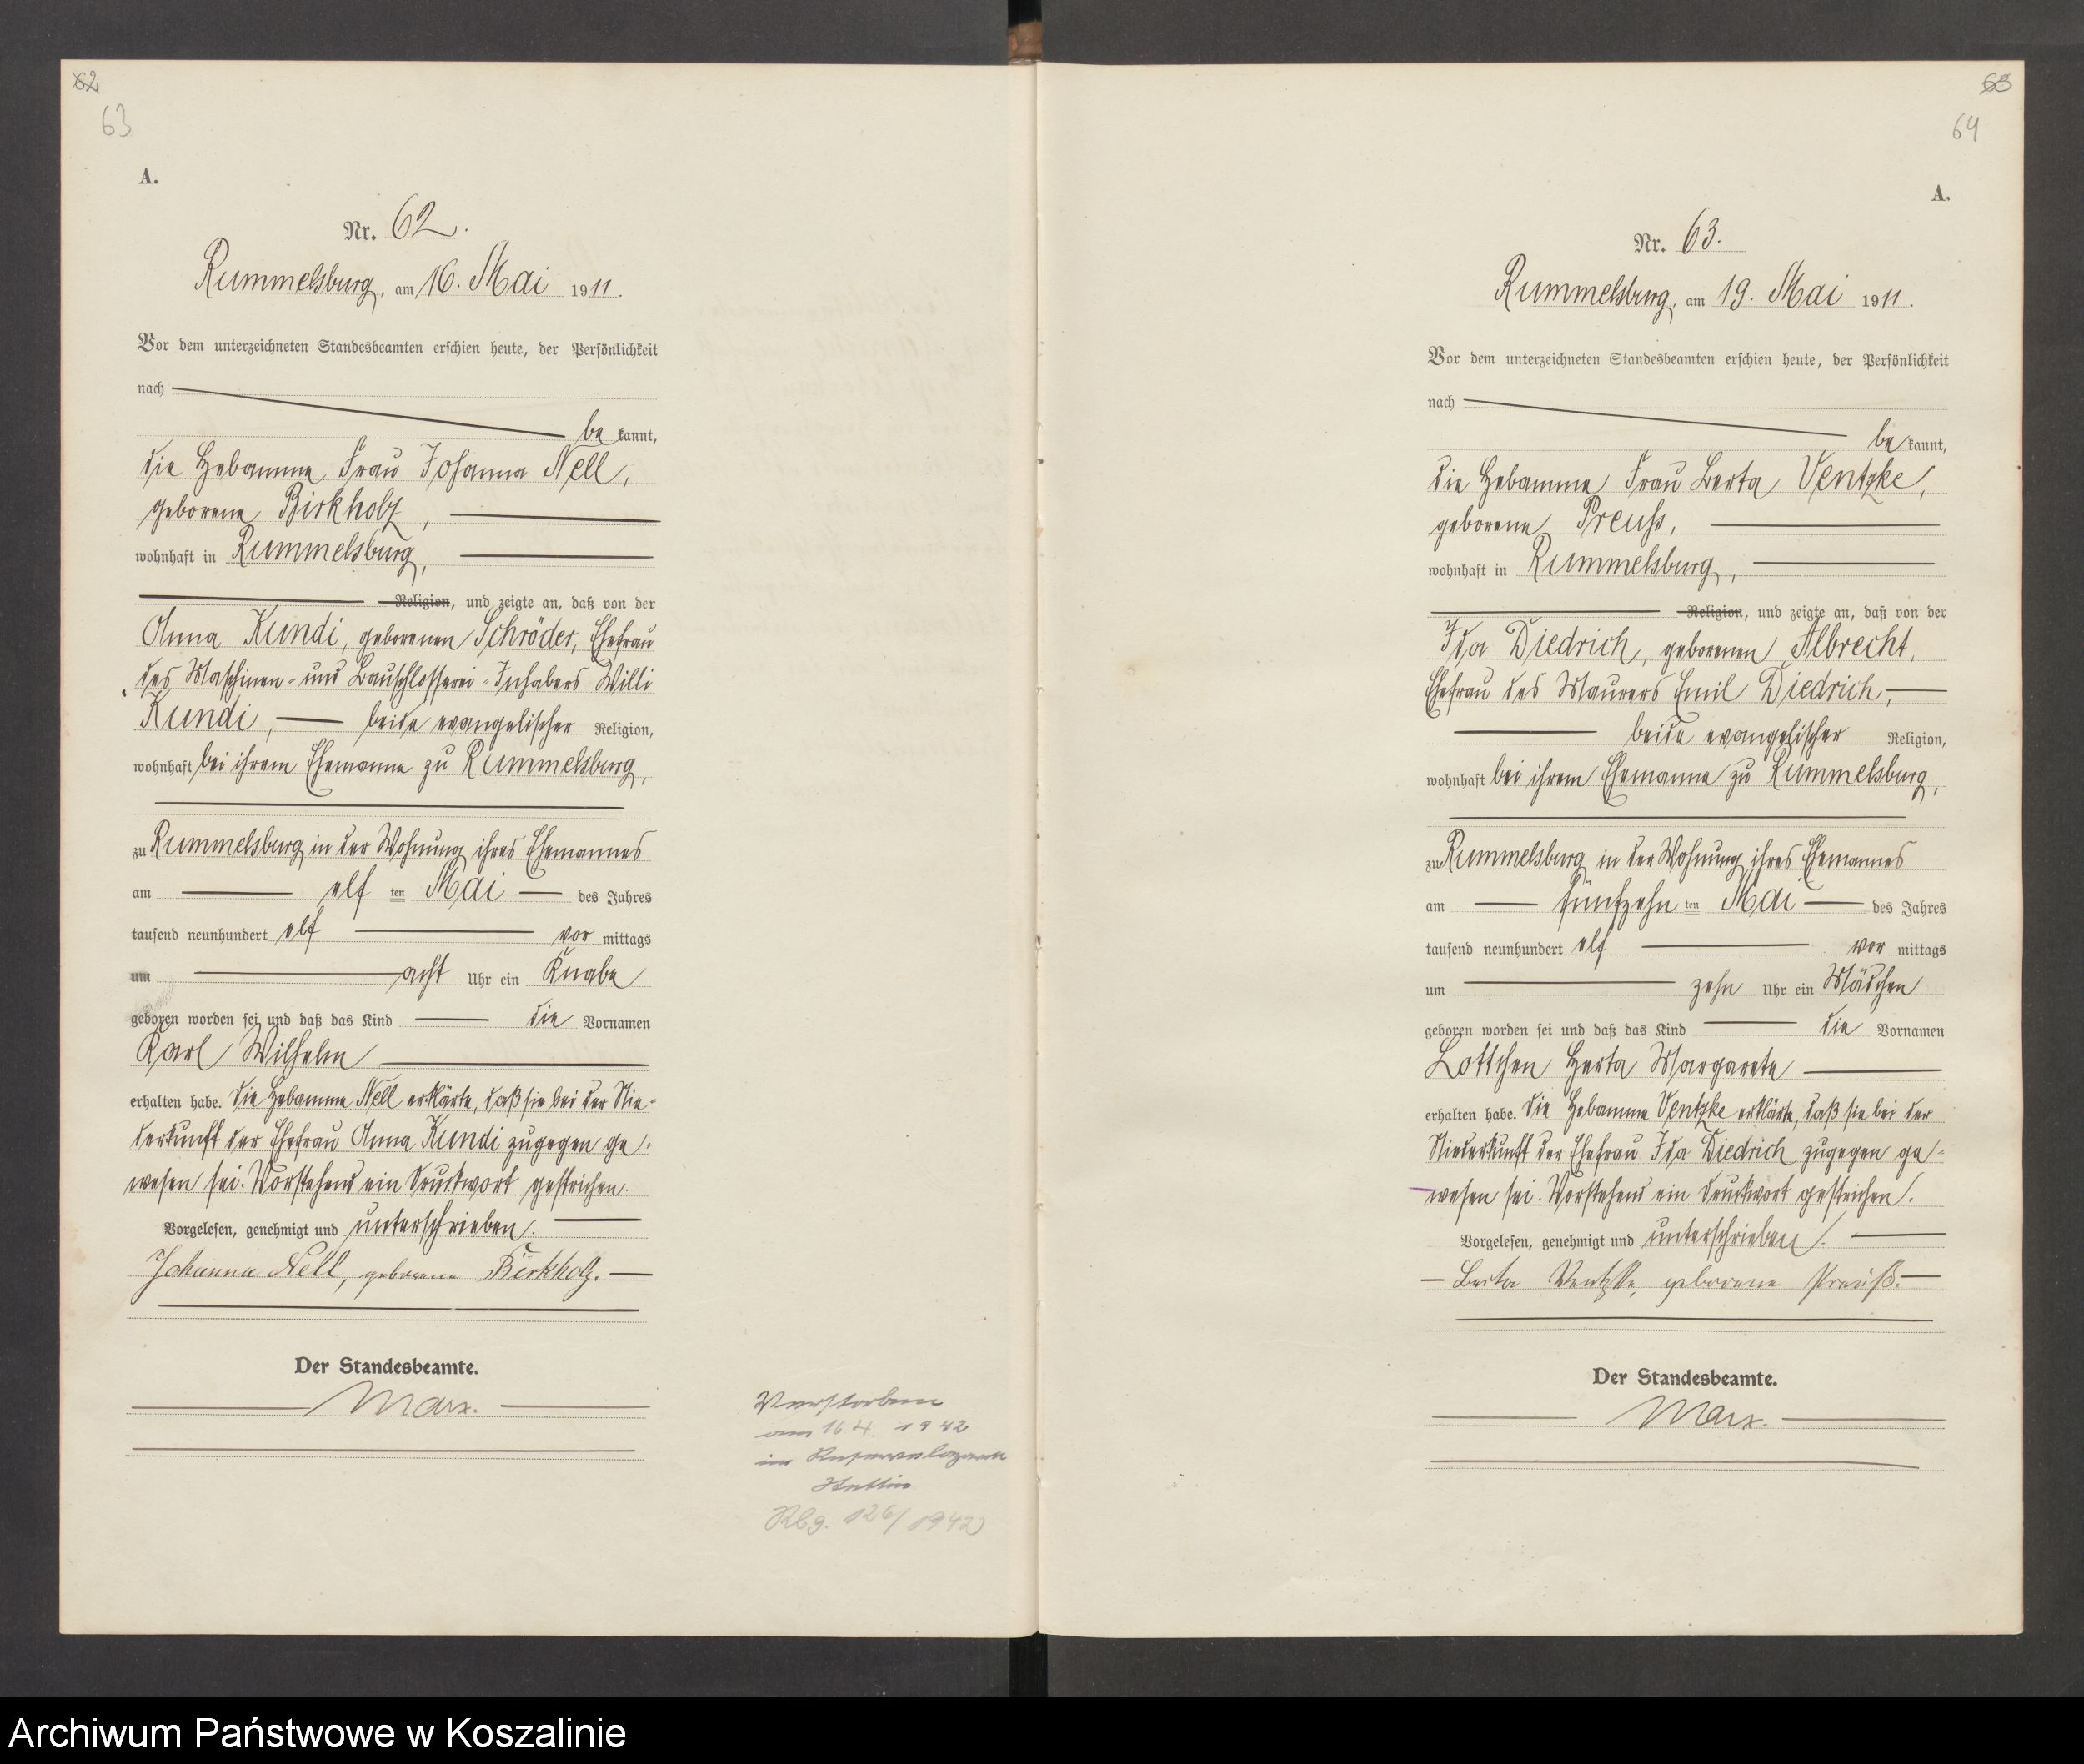 62
63
A.
Nr. 62.
Rummelsburg, am 16. Mai 1911.
Vor dem unterzeichneten Standesbeamten erschien heute, der Persönlichkeit
nach
be kannt,
die Hebamme Frau Johanna Nell,
geborene Birkholz,
wohnhaft in Rummelsburg,
Religion, und zeigte an, daß von der
Anna Kundi, geborenen Schröder, Ehefrau
des Maschinen- und Bauschlosserei-Inhabers Willi
Kundi, beide evangelischer Religion,
wohnhaft bei ihrem Ehemanne zu Rummelsburg,
zu Rummelsburg in der Wohnung ihres Ehemannes
am elf ten Mai des Jahres
tausend neunhundert elf vor mittags
um acht Uhr ein Knabe
geboren worden sei und daß das Kind die Vornamen
Karl Wilhelm
erhalten habe. Die Hebamme Nell erklärte, daß sie bei der Nie-
derkunft der Ehefrau Anna Kundi zugegen ge-
wesen sei. Vorstehend ein Druckwort gestrichen.
Vorgelesen, genehmigt und unterschrieben.
Johanna Nell, geborene Birkholz.
Der Standesbeamte.
Marx.
Verstorben
am 16 4 1942
im Reservelazarett
Stettin
Rbg. 126/1942
63
64
A.
Nr. 63.
Rummelsburg, am 19. Mai 1911.
Vor dem unterzeichneten Standesbeamten erschien heute, der Persönlichkeit
nach
be kannt,
die Hebamme Frau Berta Ventzke,
geborene Preuss,
wohnhaft in Rummelsburg,
Religion, und zeigte an, daß von der
Ida Diedrich, geborenen Albrecht,
Ehefrau des Maurers Emil Diedrich,
beide evangelischer Religion,
wohnhaft bei ihrem Ehemanne zu Rummelsburg,
zu Rummelsburg in der Wohnung ihres Ehemannes
am fünfzehn ten Mai des Jahres
tausend neunhundert elf vor mittags
um zehn Uhr ein Mädchen
geboren worden sei und daß das Kind die Vornamen
Lottchen Herta Margarete
erhalten habe. Die Hebamme Ventzke erklärte, daß sie bei der
Niederkunft der Ehefrau Ida Diedrich zugegen ge-
wesen sei. Vorstehend ein Druckwort gestrichen.
Vorgelesen, genehmigt und unterschrieben.
Berta Ventzke, geborene Preuß.
Der Standesbeamte.
Marx.
Archiwum Państwowe w Koszalinie